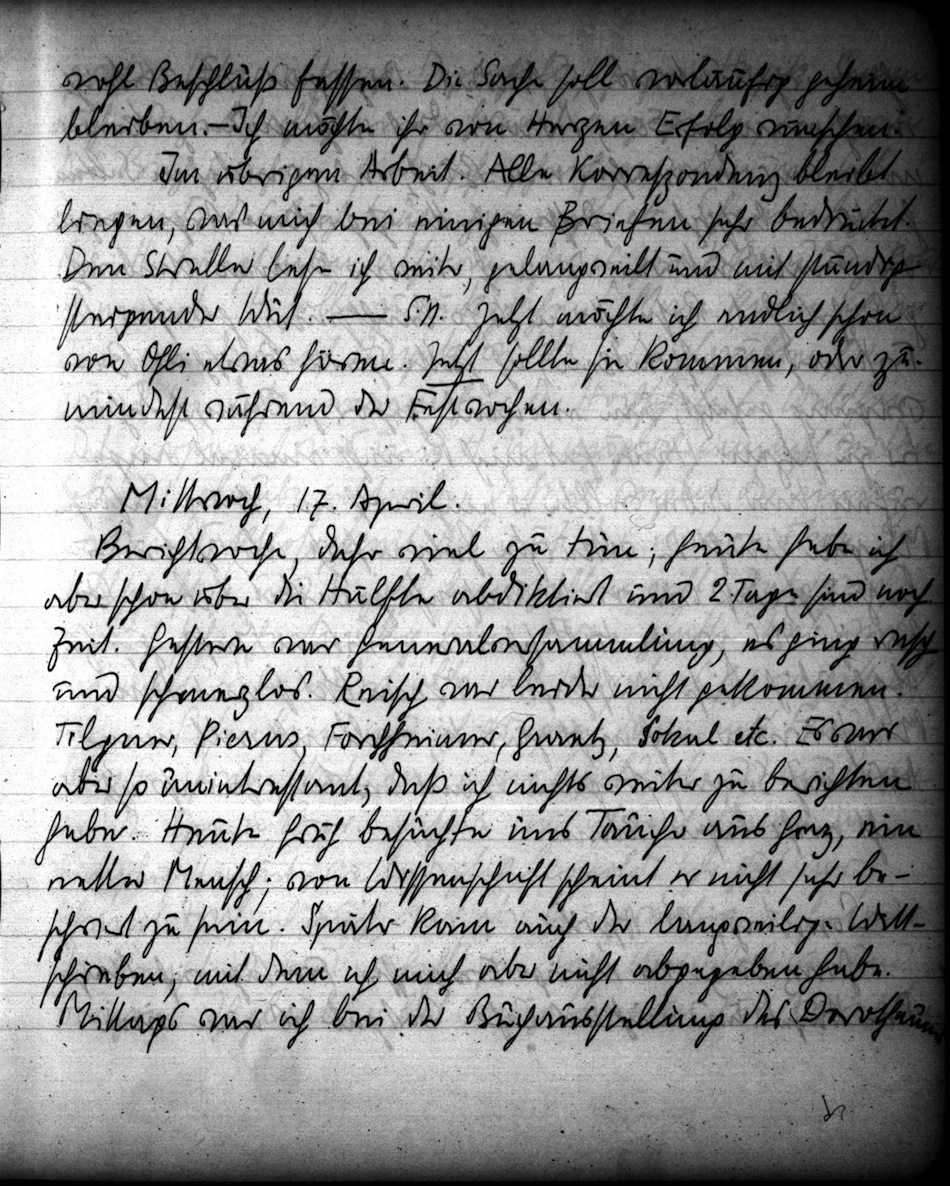 wohl Beschluß fassen. Die Sache soll vorläufig geheim
bleiben. – Ich möchte ihr von Herzen Erfolg wünschen.
Im übrigen Arbeit. Alle Korrespondenz bleibt
liegen, was mich bei einigen Briefen sehr bedrückt.
Den lese ich weiter, gelangweilt und mit ständig
steigender Wut. — S.N. Jetzt möchte ich endlich schon
von etwas hören. Jetzt sollte sie kommen, oder zu-
mindest während der Festwochen.
Mittwoch, 17. April.
Berichtwoche, daher viel zu tun; heute habe ich
aber schon über die Hälfte abdiktiert und 2 Tage sind noch
Zeit. Gestern war Generalversammlung, es ging rasch
und schmerzlos. Reisch war leider nicht gekommen.
Tilgner, Forchheimer, Granetz, Sokal etc. Es war
aber so uninteressant, daß ich nichts weiter zu berichten
habe. Heute früh besuchte uns Tauche aus Graz, ein
netter Mensch; von Wissenschaft scheint er nicht sehr be-
schwert zu sein. Später kam auch der langweilige Witt-
schieben, mit dem ich mich aber nicht abgegeben habe.
Mittags war ich bei der Buchausstellung des Dorotheums